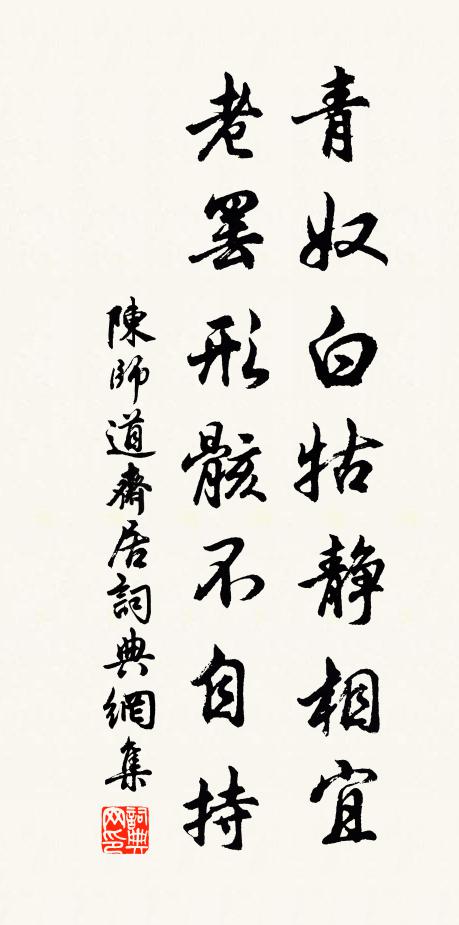 青奴白牯静相宜
老罢形骸不自持
陳師道齋居詞典網集
詞典网印